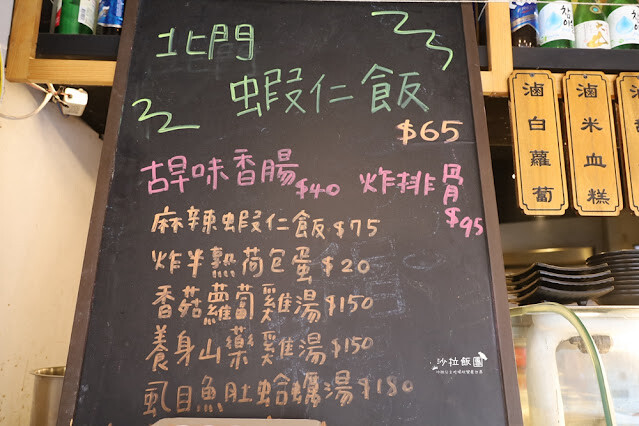 北門
蝦仁飯
$65
古早味香腸 $40 炸排骨 $95
麻辣蝦仁飯 $75
炸半熟荷包蛋 $20
香菇蘿蔔雞湯 $150
養身山藥雞湯 $150
虱目魚肚蛤蠣湯 $180
滷白蘿蔔
滷米血糕
沙拉飯團